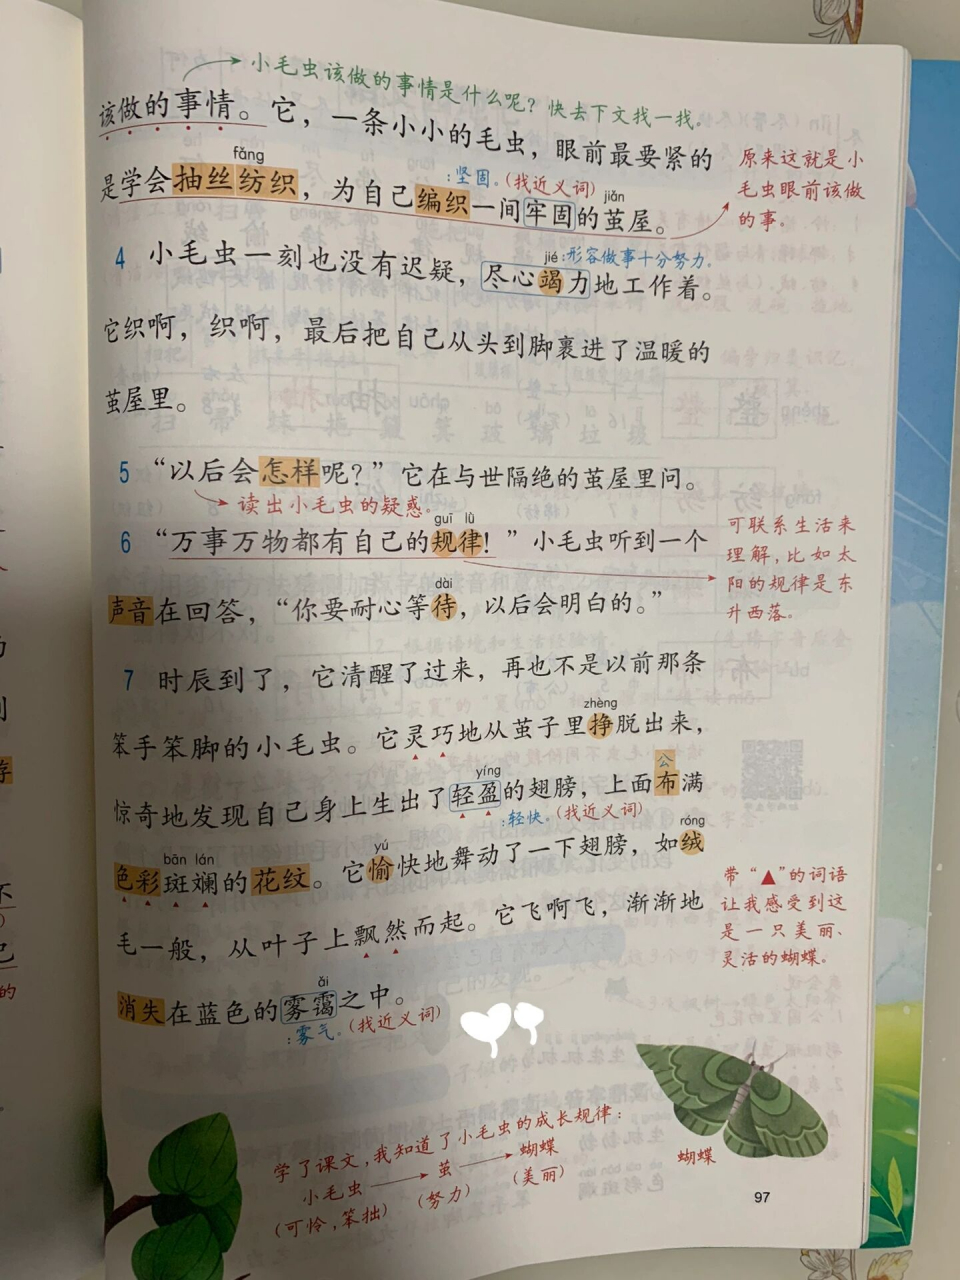 小毛虫该做的事情是什么呢？快去下文找一找。
该做的事情。它，一条小小的毛虫，眼前最要紧的
fǎng
:坚固。(找近义词)
jiǎn
是学会抽丝纺织，为自己编织一间牢固的茧屋。
原来这就是小
毛虫眼前该做
的事。
jié
:形容做事十分努力。
4 小毛虫一刻也没有迟疑，尽心竭力地工作着。
它织啊，织啊，最后把自己从头到脚裹进了温暖的
茧屋里。
5 “以后会怎样呢？”它在与世隔绝的茧屋里问。
读出小毛虫的疑惑。
guī lǜ
6 “万事万物都有自己的规律！”小毛虫听到一个
可联系生活来
理解，比如太
阳的规律是东
升西落。
dài
声音在回答，“你要耐心等待，以后会明白的。”
7 时辰到了，它清醒了过来，再也不是以前那条
zhèng
笨手笨脚的小毛虫。它灵巧地从茧子里挣脱出来，
yíng
公
惊奇地发现自己身上生出了轻盈的翅膀，上面布满
:轻快。(找近义词)
bān lán
yú
róng
色彩斑斓的花纹。它愉快地舞动了一下翅膀，如绒
毛一般，从叶子上飘然而起。它飞啊飞，渐渐地
带“▲”的词语
让我感受到这
是一只美丽、
灵活的蝴蝶。
ǎi
消失在蓝色的雾霭之中。
:雾气。(找近义词)
学了课文，我知道了小毛虫的成长规律：
小毛虫 → 茧 → 蝴蝶
(可怜，笨拙) (努力) (美丽)
蝴蝶
97